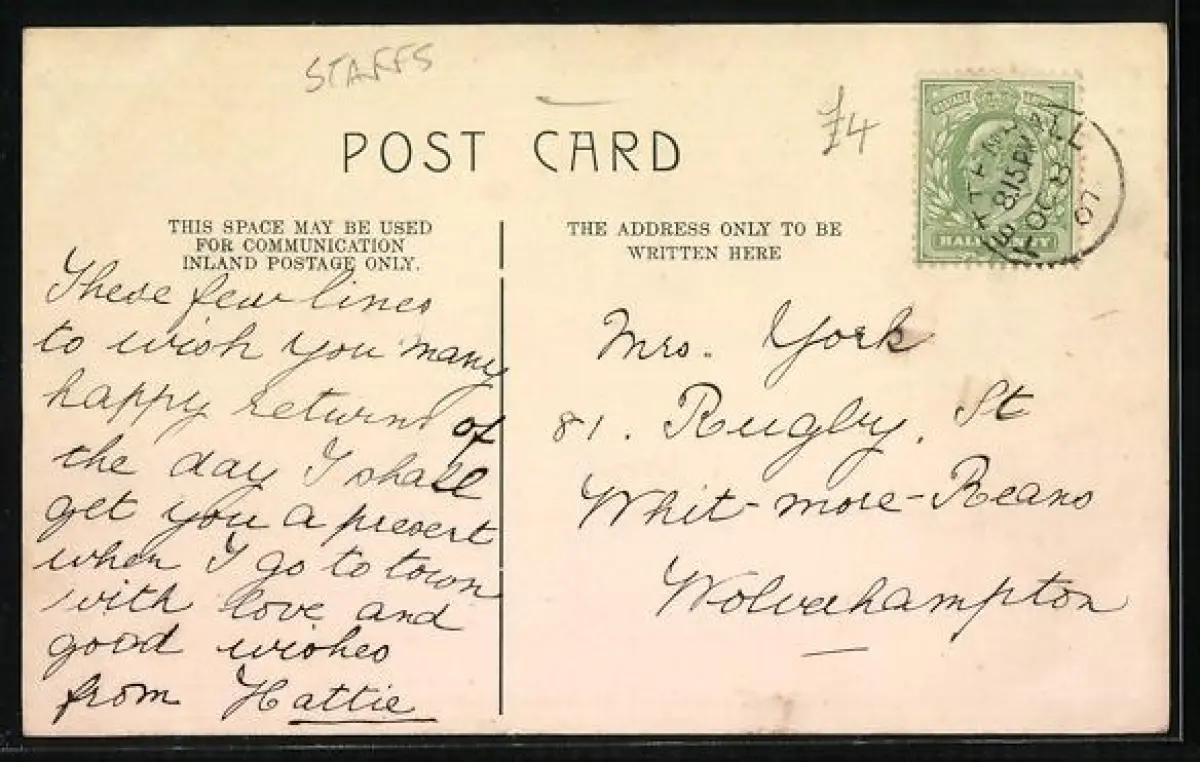 STAFFS
£4
POST CARD
THIS SPACE MAY BE USED
FOR COMMUNICATION
INLAND POSTAGE ONLY.
THE ADDRESS ONLY TO BE
WRITTEN HERE
HALFPENNY
HALL
8.15 PM
OC 8
07
These few lines
to wish you many
happy returns of
the day I shall
get you a present
when I go to town
with love and
good wishes
from Hattie
Mrs. York
81. Rugby. St
Whit-more-Reans
Wolverhampton